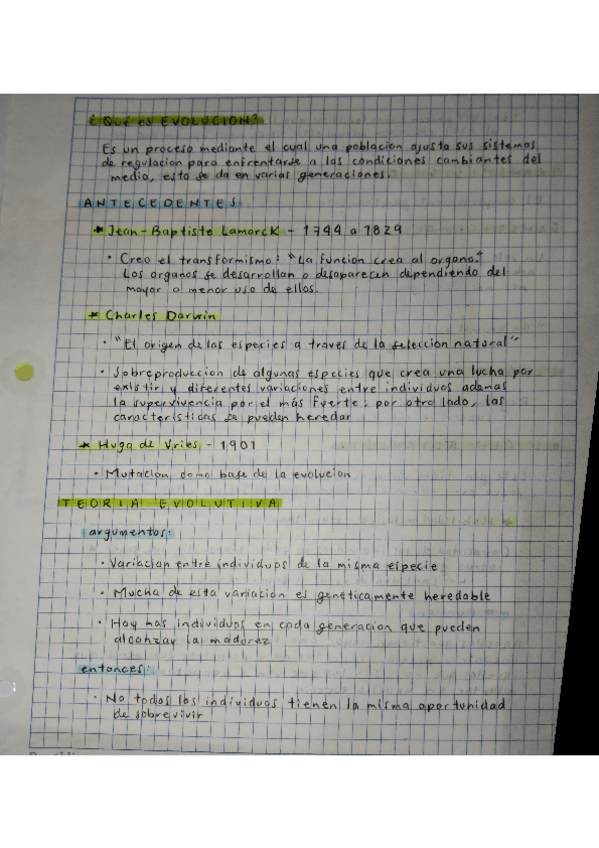 ¿Qué es EVOLUCION?
Es un proceso mediante el cual una poblacion ajusta sus sistemas
de regulacion para enfrentarse a las condiciones cambiantes del
medio, esto se da en varias generaciones.
ANTECEDENTES
* Jean-Baptiste Lamarck - 1744 a 1829
· Creo el transformismo: "La funcion crea al organo."
Los organos se desarrollan o desaparecen dependiendo del
mayor o menor uso de ellos.
* Charles Darwin
· "El origen de las especies a traves de la seleccion natural"
· Sobreproduccion de algunas especies que crea una lucha por
existir y diferentes variaciones entre individuos ademas
la supervivencia por el más fuerte; por otro lado, las
caracteristicas se pueden heredar
* Hugo de Vries - 1901
· Mutacion como base de la evolucion
TEORIA EVOLUTIVA
argumentos:
· Variacion entre individuos de la misma especie
· Mucha de esta variacion es geneticamente heredable
· Hay mas individuos en cada generacion que pueden
alcanzar la madurez
entonces:
· No todos los individuos tienen la misma oportunidad
de sobrevivir